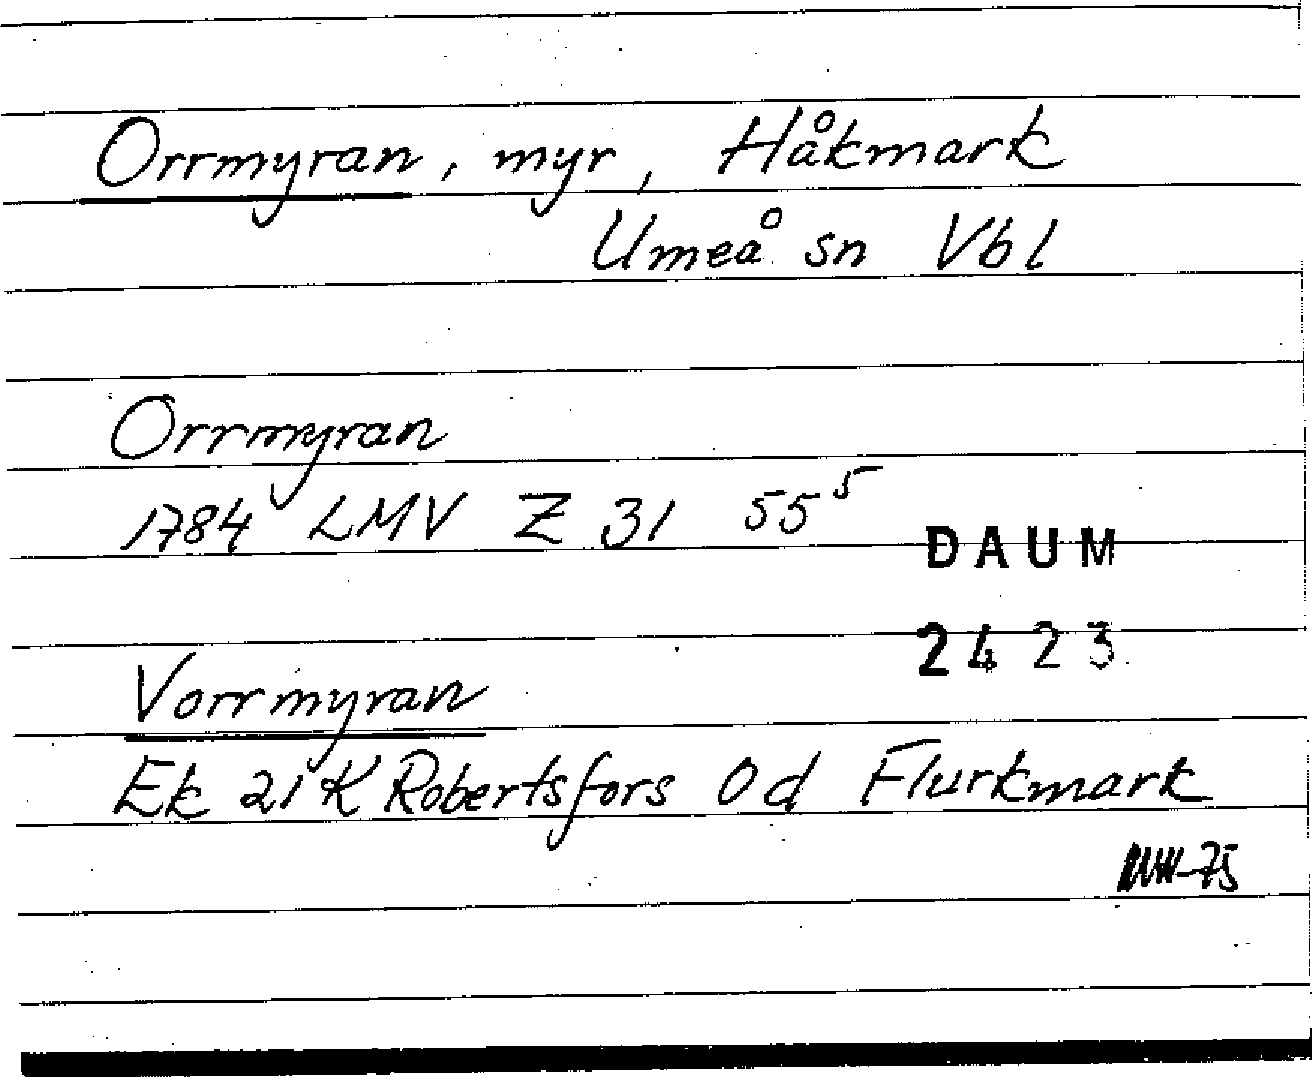 Orrmyran, myr, Håkmark
Umeå sn Vbl
Orrmyran
1784 LMV Z 31 55⁵
DAUM
2423
Vorrmyran
Ek 21K Robertsfors 0d Flurkmark
-75